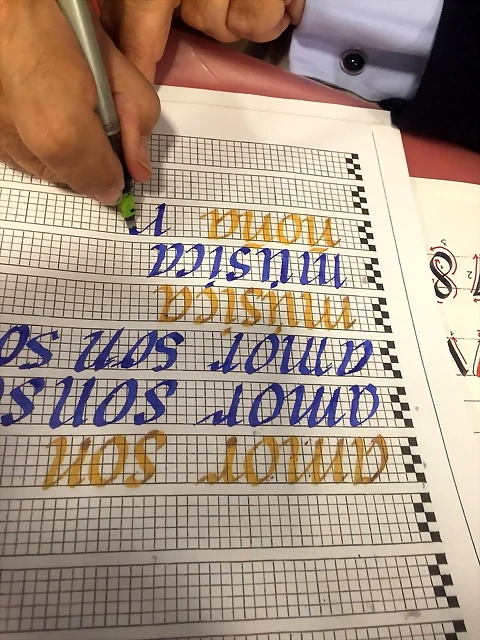 amor son
amor sons
amor son so
música
música
ñoña
8